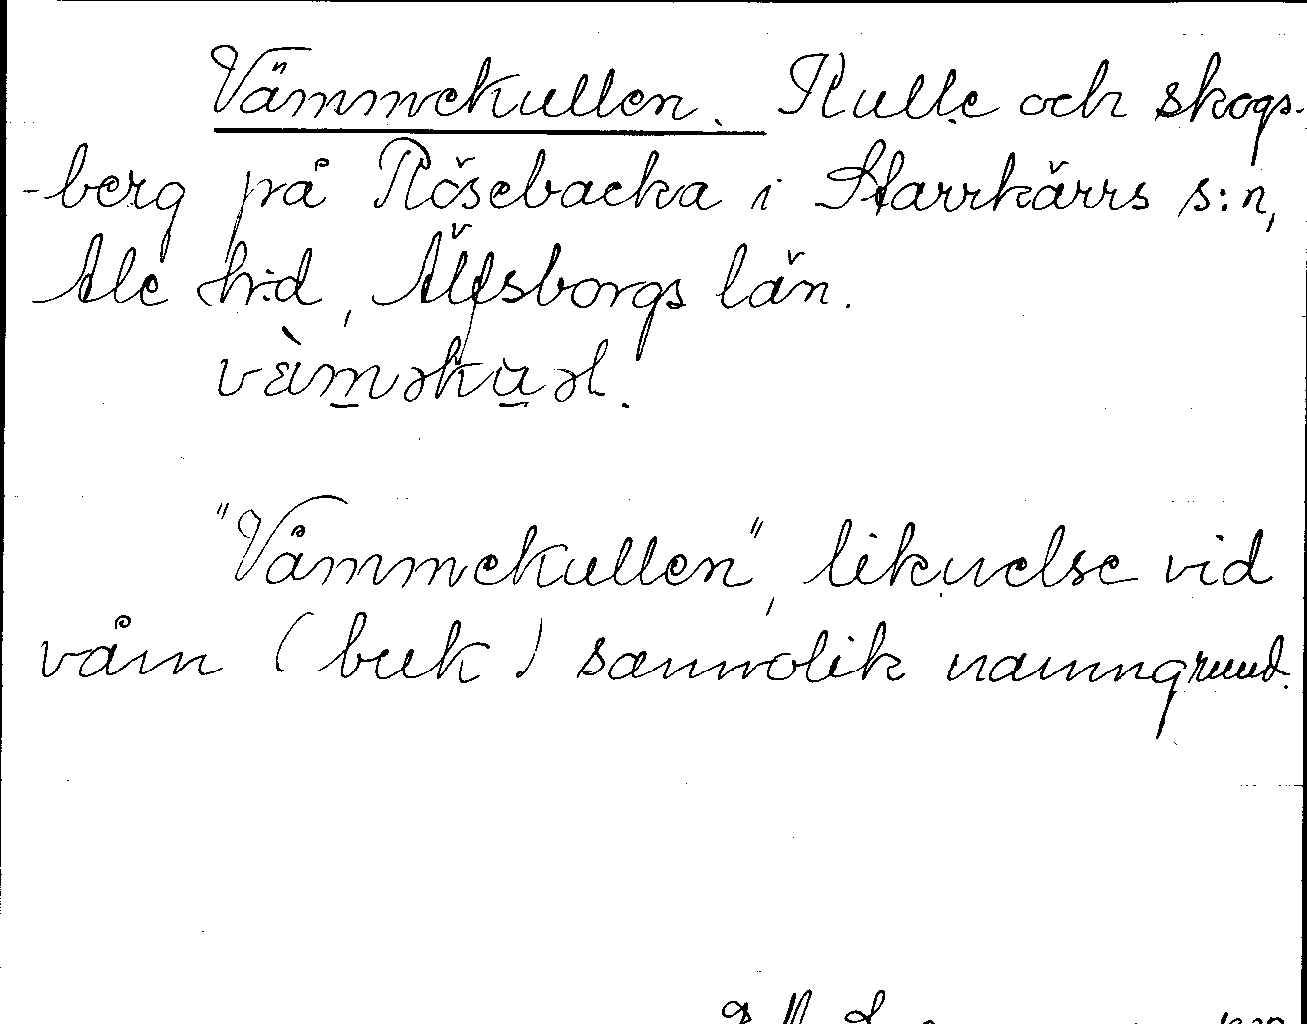 Vämmekullen. Kulle och skogs-
-berg på Rösebacka i Starrkärrs s:n,
Ale h:d, Älfsborgs län.
vὲm̲əku̲əl.
"Våmmekullen", liknelse vid
våm (buk) sannolik namngrund.